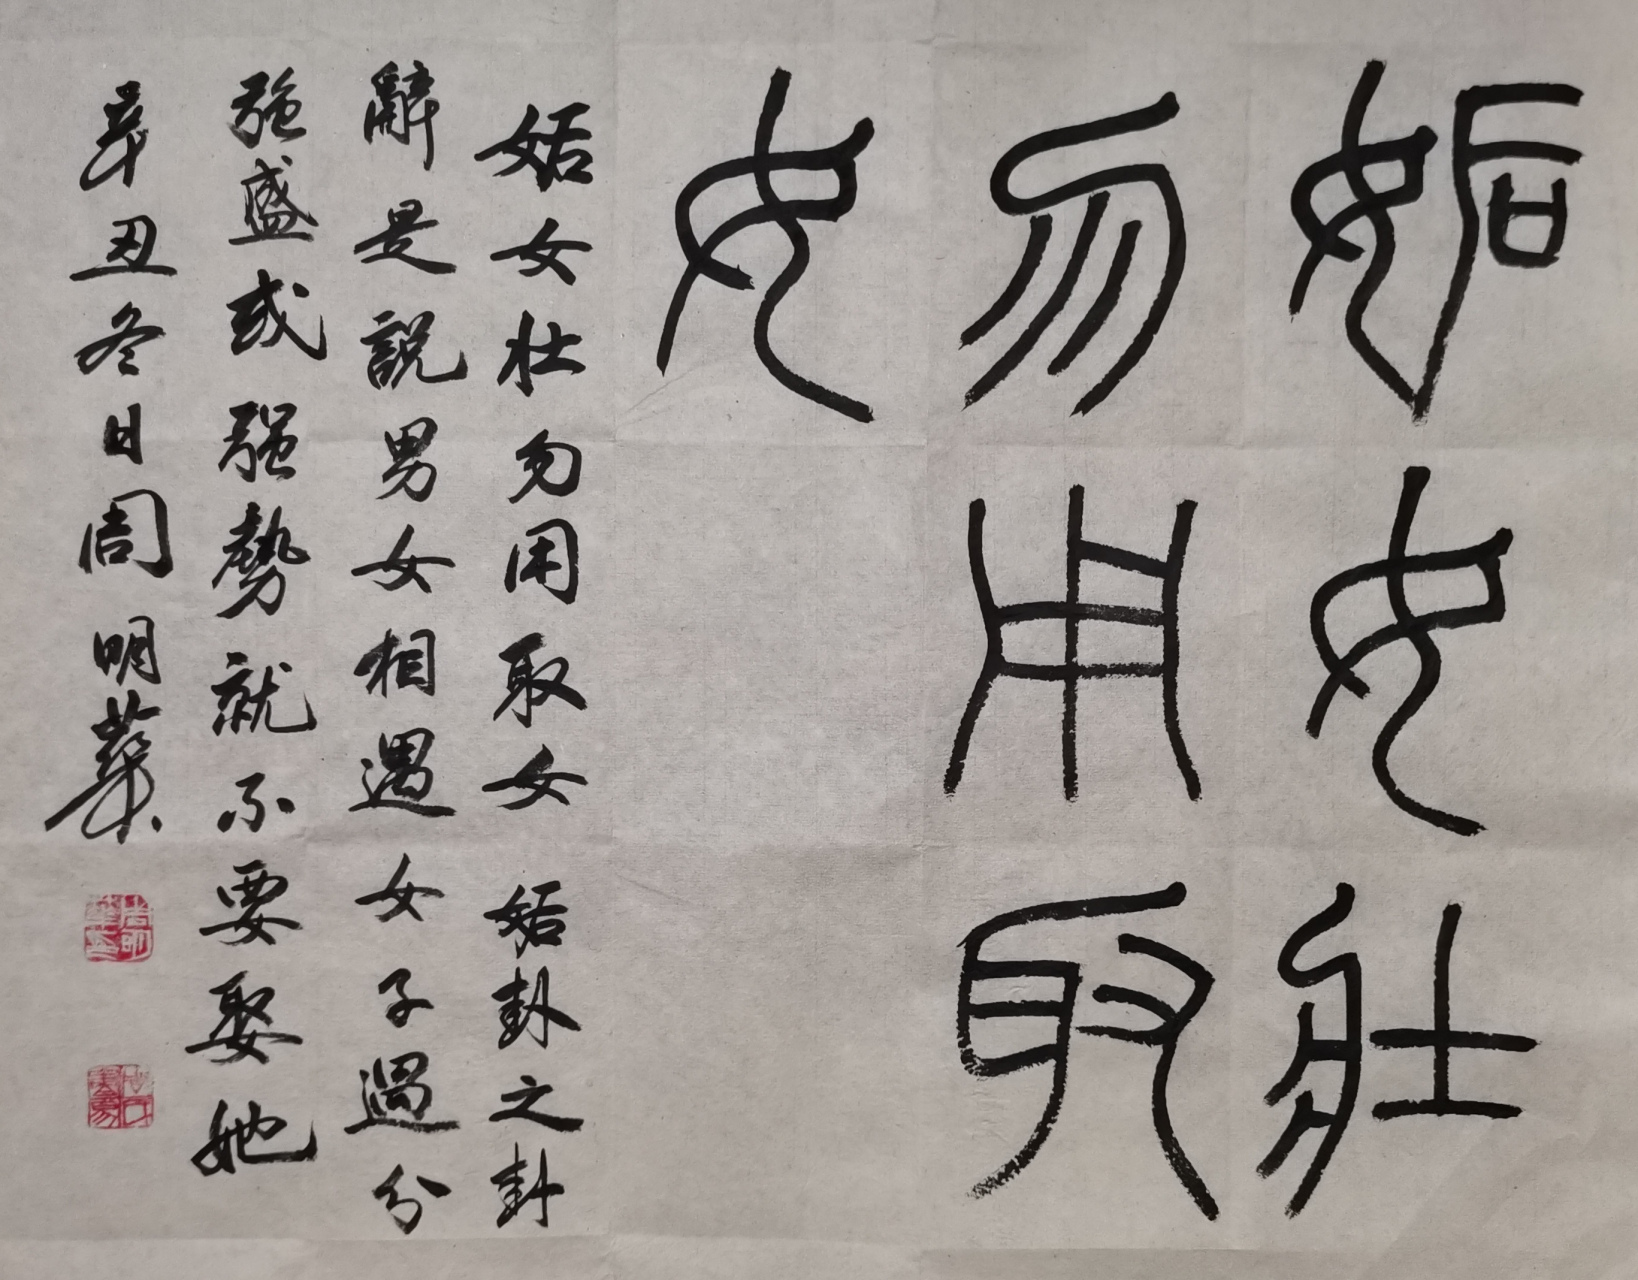 姤女壯
勿用取
女
姤女壮勿用取女 姤卦之卦
辭是説男女相遇女子過分
強盛或强勢就不要娶她
辛丑冬日周明華
周明華印